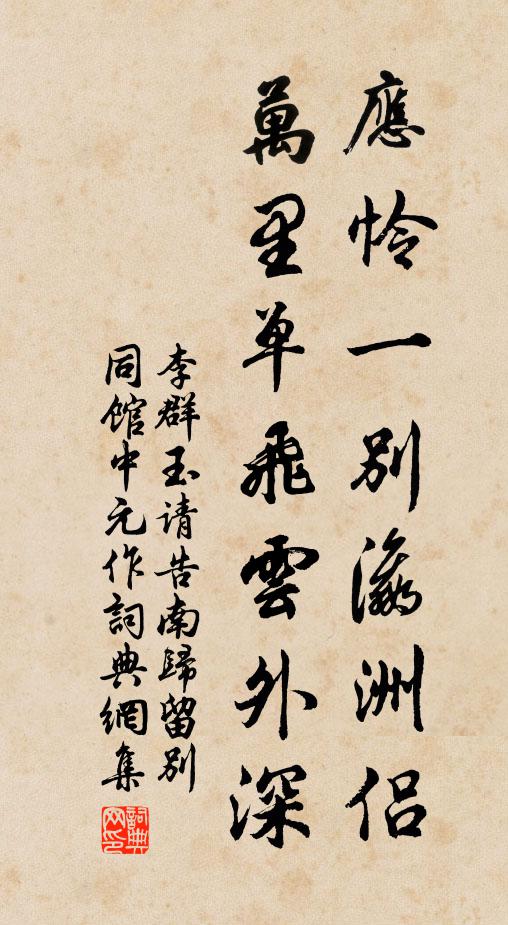 應怜一别瀛洲侣
萬里单飛雲外深
李群玉请告南歸留别
同館中元作詞典網集
詞典网印